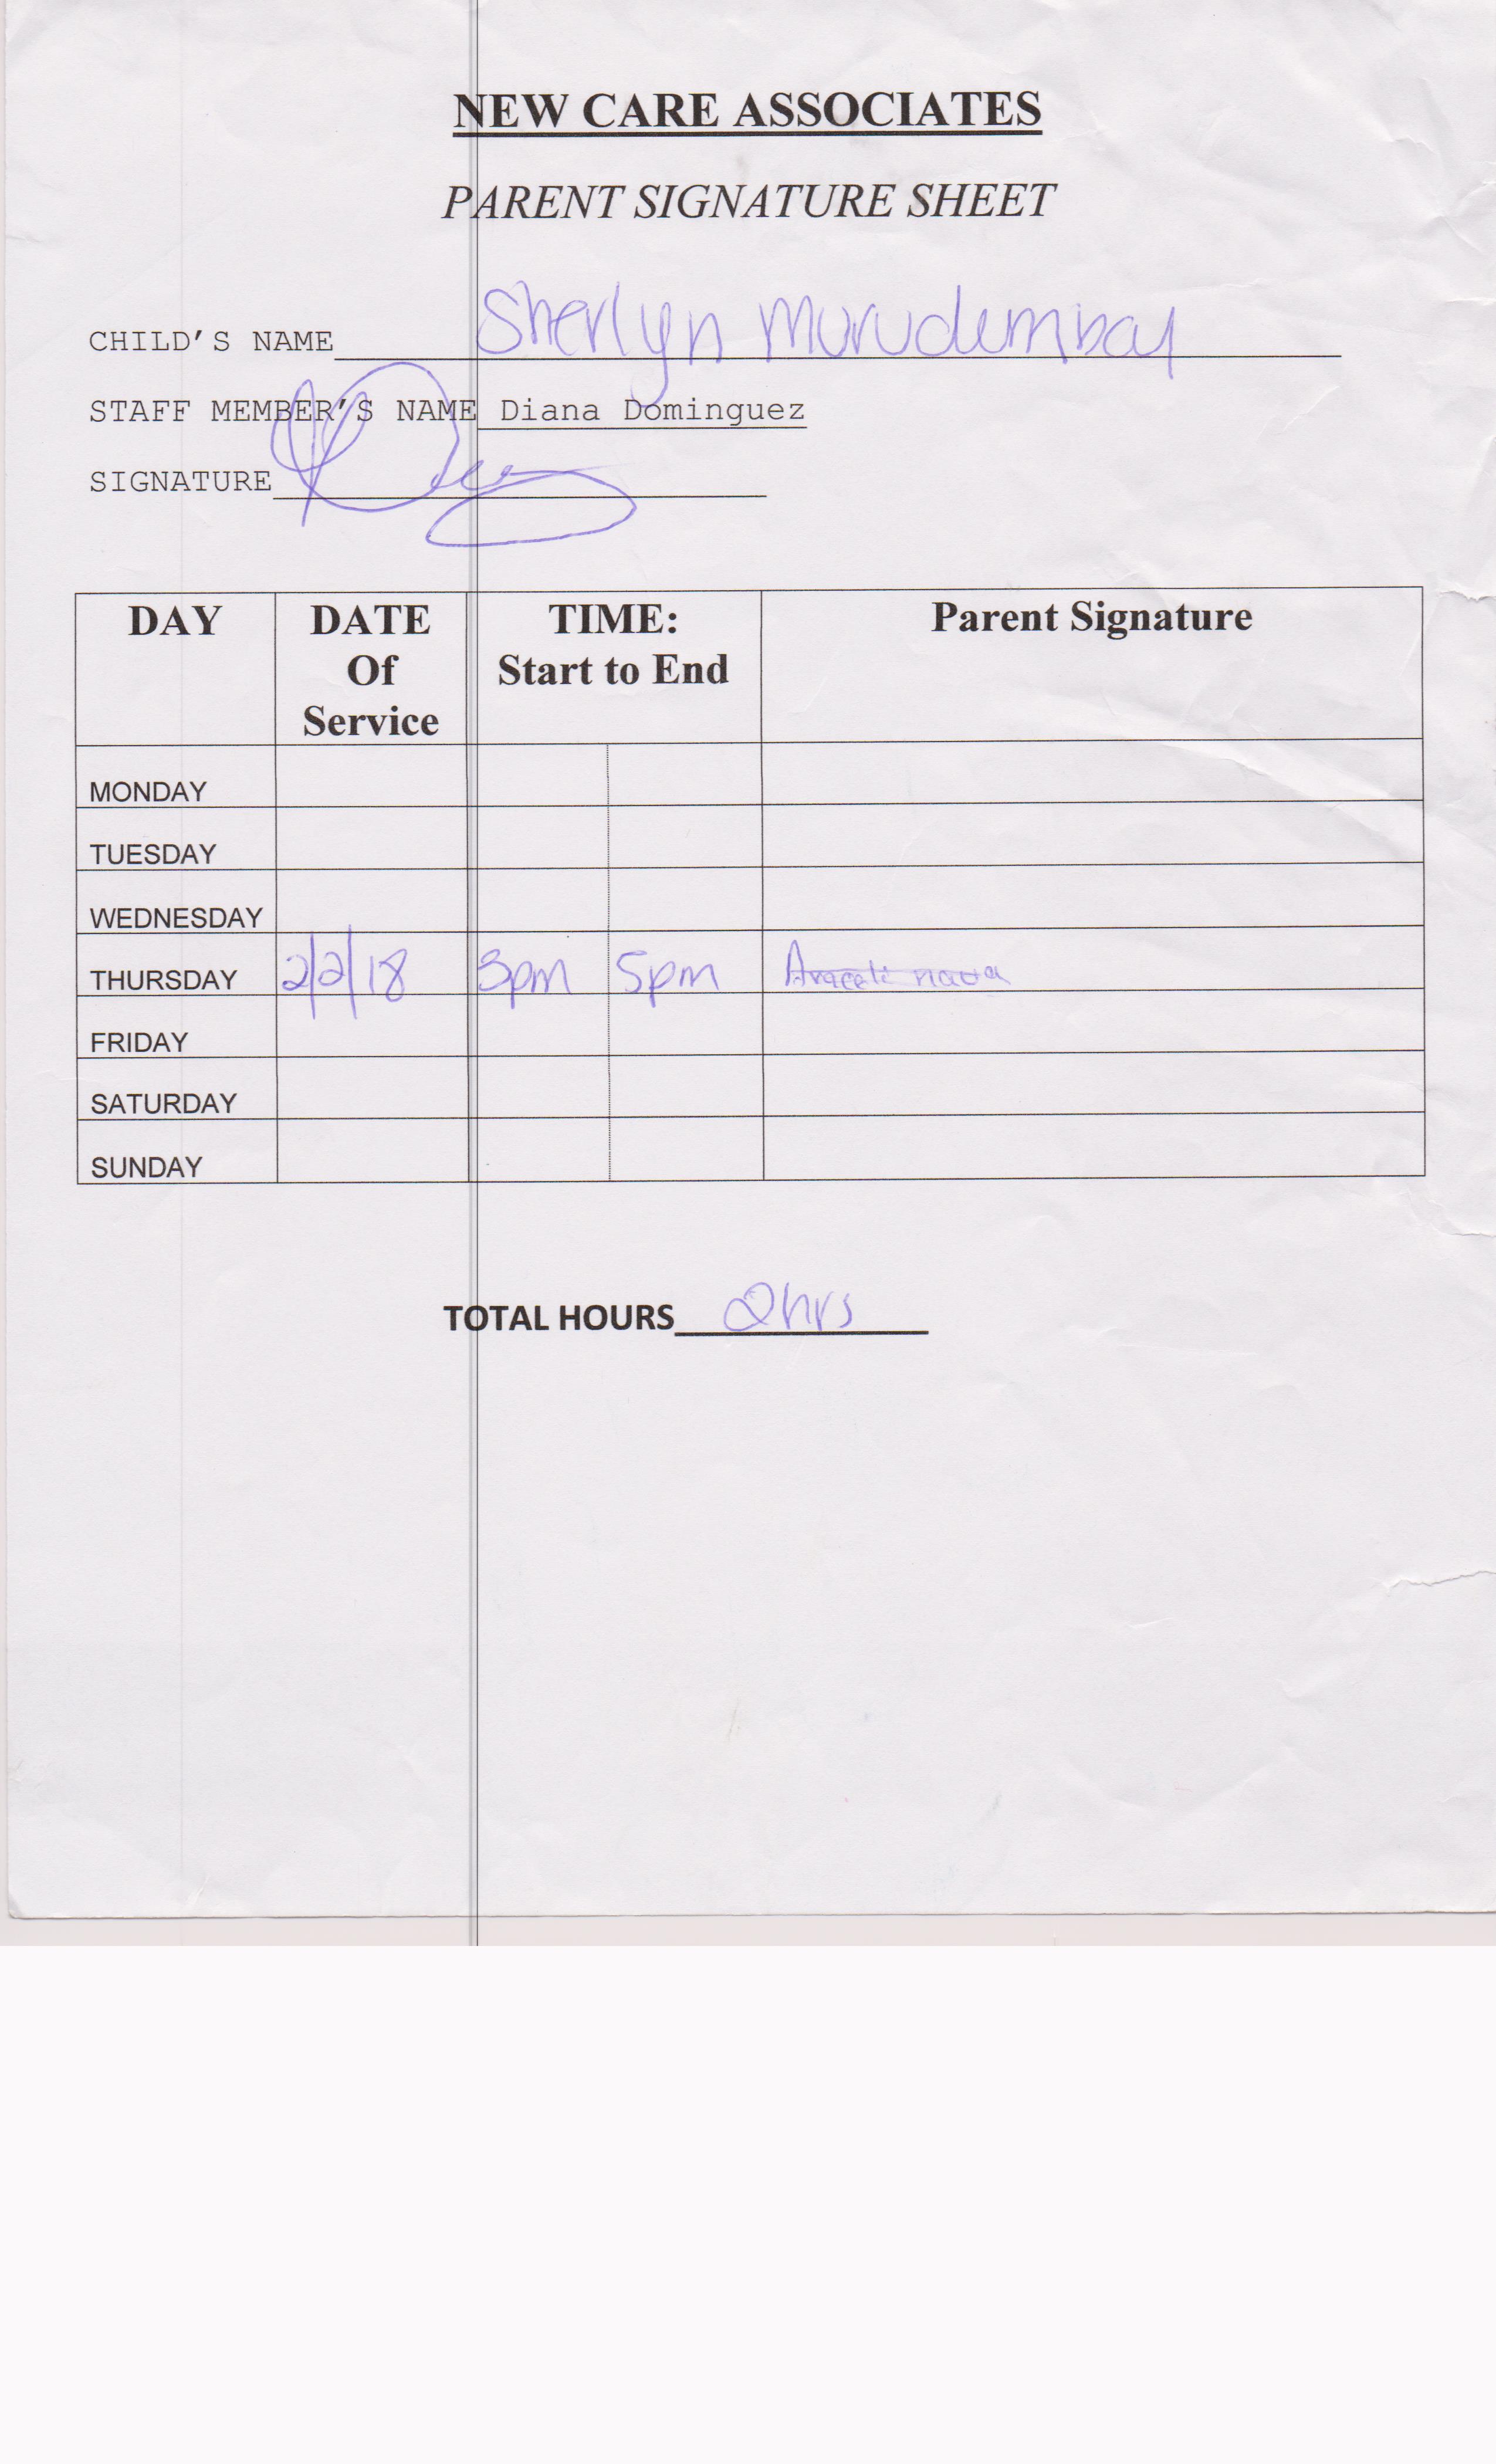 NEW CARE ASSOCIATES
PARENT SIGNATURE SHEET
CHILD'S NAME Sherlyn Murudumbay
STAFF MEMBER'S NAME Diana Dominguez
SIGNATURE
DAY DATE Of Service TIME: Start to End Parent Signature
MONDAY
TUESDAY
WEDNESDAY
THURSDAY 2/2/18 3pm 5pm Araceli nava
FRIDAY
SATURDAY
SUNDAY
TOTAL HOURS 2hrs